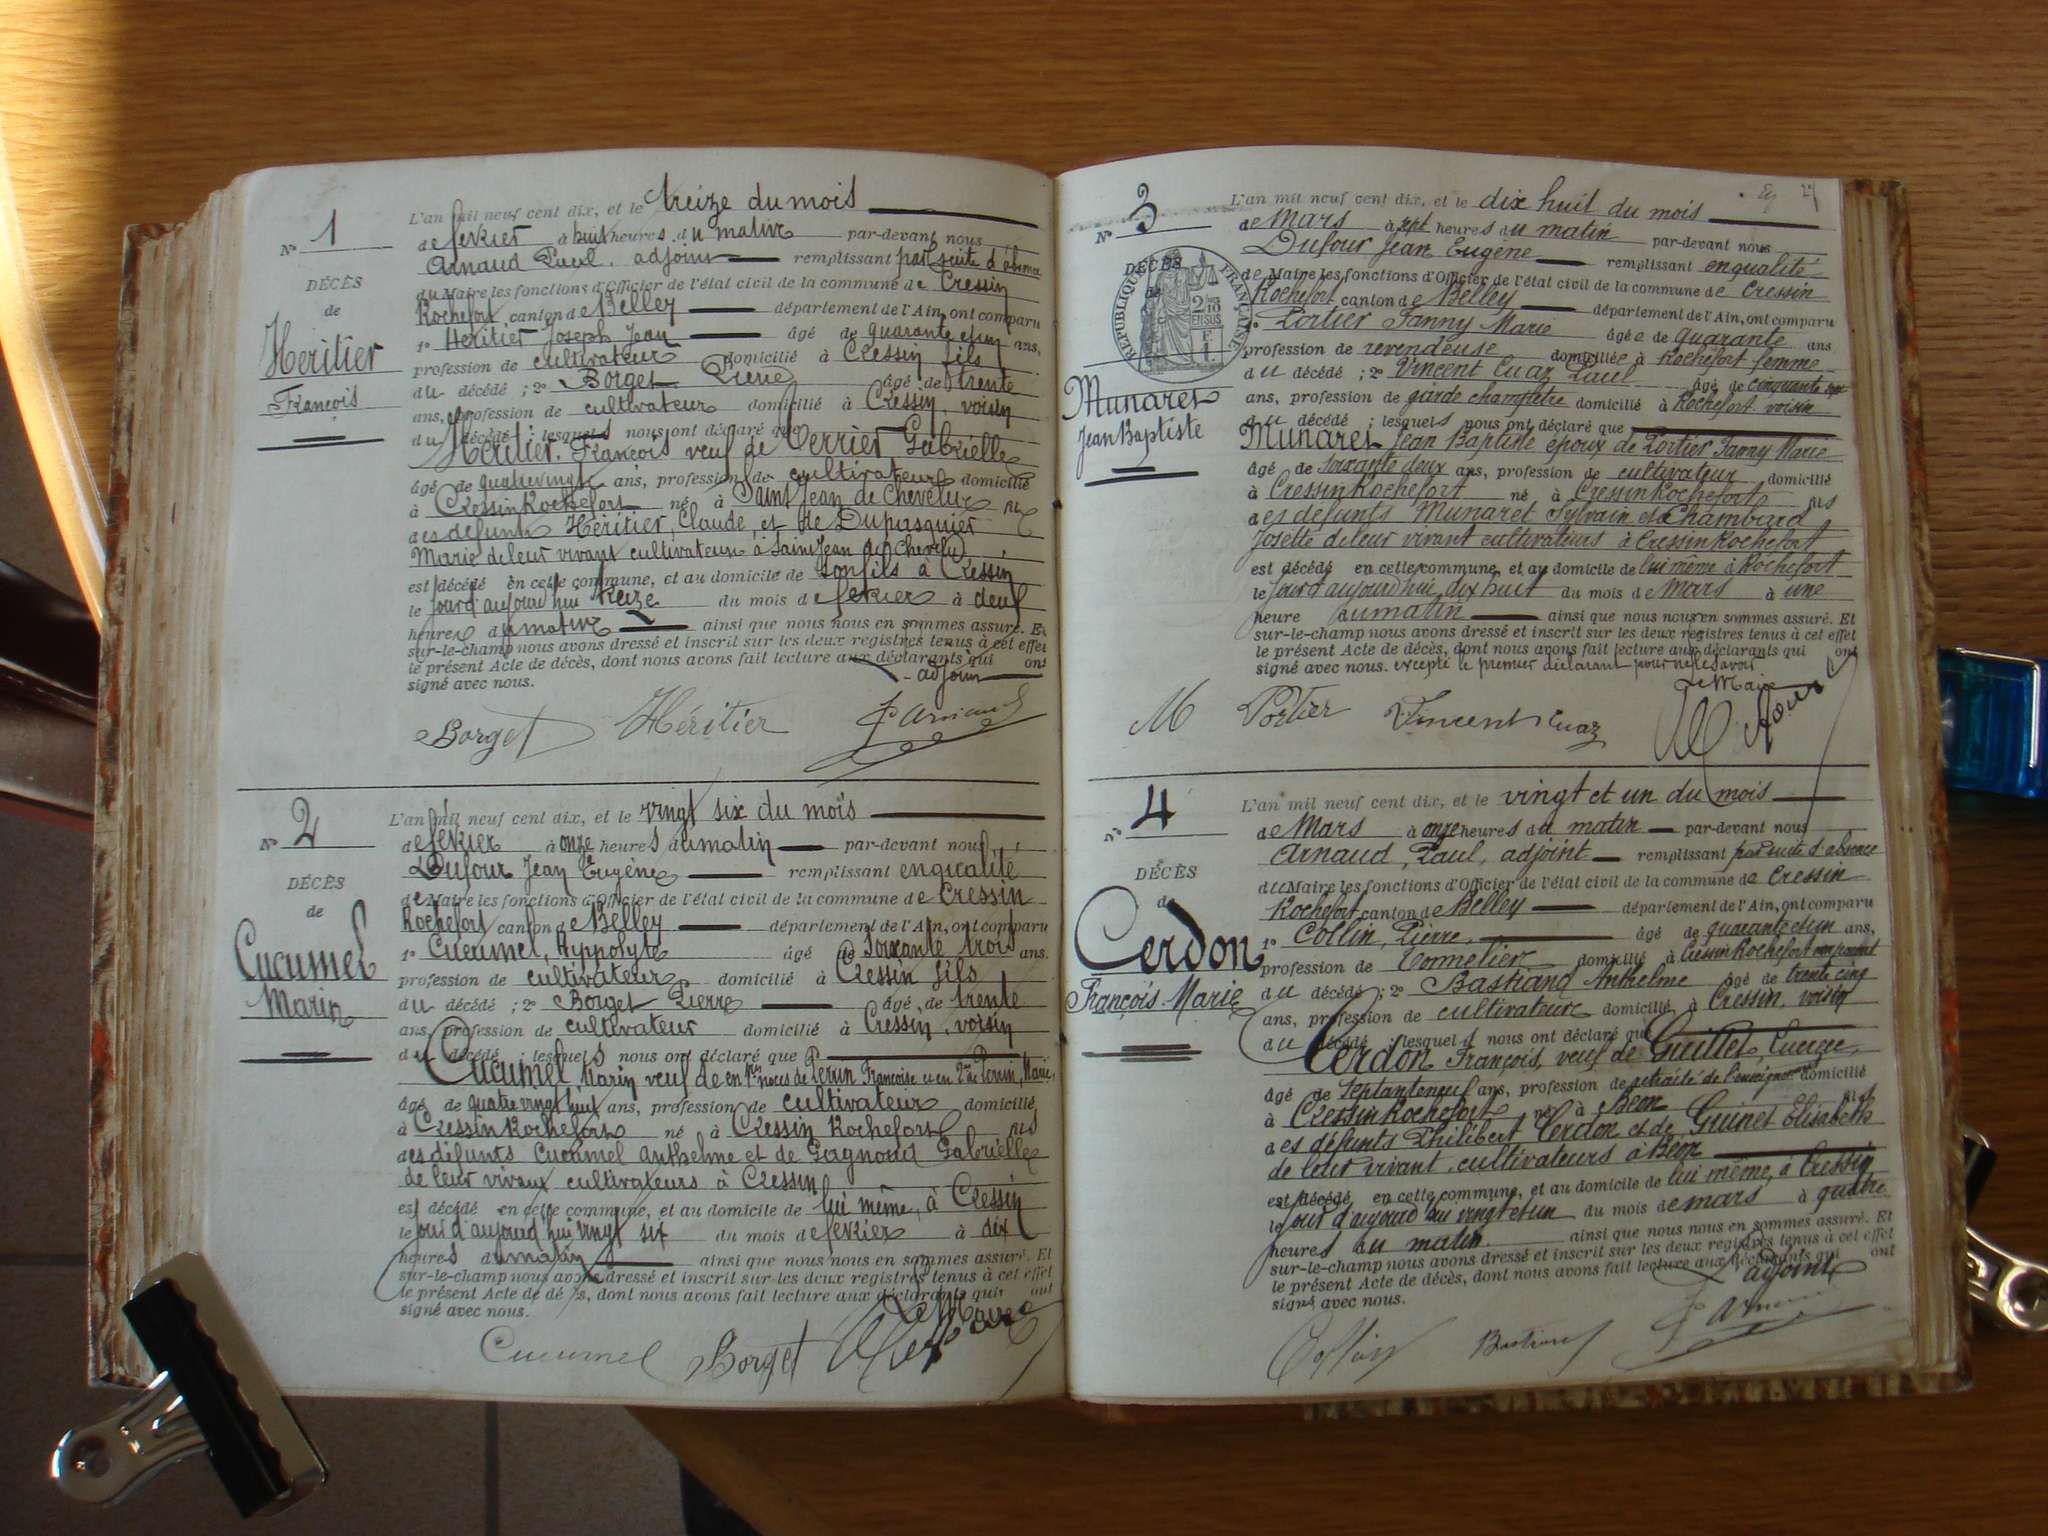 N° 1
DÉCÈS
de
Héritier
François
L'an mil neuf cent dix, et le treize du mois
de février à huit heures du matin par-devant nous
Arnaud Paul, adjoint remplissant par suite d'absence
du Maire les fonctions d'Officier de l'état civil de la commune de Cressin
Rochefort canton de Belley département de l'Ain, ont comparu
1° Héritier Joseph Jean âgé de quarante et un ans,
profession de cultivateur domicilié à Cressin fils
du décédé ; 2° Borget Pierre âgé de trente
ans, profession de cultivateur domicilié à Cressin, voisin
du décédé ; lesquels nous ont déclaré que
Héritier François veuf de Verrier Gabrielle
âgé de quatre vingt ans, profession de cultivateur domicilié
à Cressin Rochefort né à Saint Jean de Chevelu fils
des défunts Héritier, Claude, et de Dupasquier
Marie de leur vivant cultivateurs à Saint Jean de Chevelu
est décédé en cette commune, et au domicile de son fils à Cressin
le jour d'aujourd'hui treize du mois de février à deux
heures du matin ainsi que nous nous en sommes assuré. Et
sur-le-champ nous avons dressé et inscrit sur les deux registres tenus à cet effet
le présent Acte de décès, dont nous avons fait lecture aux déclarants qui ont
signé avec nous.
adjoint
Borget Héritier P. Arnaud
N° 2
DÉCÈS
de
Cucumel
Marin
L'an mil neuf cent dix, et le vingt six du mois
de février à onze heures du matin par-devant nous
Dufour Jean Eugène remplissant en qualité
de Maire les fonctions d'Officier de l'état civil de la commune de Cressin
Rochefort canton de Belley département de l'Ain, ont comparu
1° Cucumel, Hyppolyte âgé de soixante trois ans.
profession de cultivateur domicilié à Cressin fils
du décédé ; 2° Borget Pierre âgé de trente
ans, profession de cultivateur domicilié à Cressin, voisin
du décédé ; lesquels nous ont déclaré que
Cucumel Marin veuf de en 1res noces de Perrin Françoise et en 2me Marie,
âgé de quatre vingt huit ans, profession de cultivateur domicilié
à Cressin Rochefort né à Cressin Rochefort fils
des défunts Cucumel Anthelme et de Gagnoud Gabrielle
de leur vivant cultivateurs à Cressin
est décédé en cette commune, et au domicile de lui même, à Cressin
le jour d'aujourd'hui vingt six du mois de février à dix
heures du matin ainsi que nous nous en sommes assuré. Et
sur-le-champ nous avons dressé et inscrit sur les deux registres tenus à cet effet
le présent Acte de décès, dont nous avons fait lecture aux déclarants qui ont
signé avec nous.
Le Maire
Cucumel Borget
N° 3
DÉCÈS
de
RÉPUBLIQUE FRANÇAISE
2/10 EN SUS
1 F
Munaret
Jean Baptiste
L'an mil neuf cent dix, et le dix huit du mois
de Mars à sept heures du matin par-devant nous
Dufour Jean Eugène remplissant en qualité
de Maire les fonctions d'Officier de l'état civil de la commune de Cressin
Rochefort canton de Belley département de l'Ain, ont comparu
1° Portier Fanny Marie âgée de quarante ans
profession de revendeuse domiciliée à Rochefort femme
du décédé ; 2° Vincent Cuaz Paul âgé de cinquante
ans, profession de garde champêtre domicilié à Rochefort voisin
du décédé ; lesquels nous ont déclaré que
Munaret Jean Baptiste époux de Portier Fanny Marie
âgé de soixante deux ans, profession de cultivateur domicilié
à Cressin Rochefort né à Cressin Rochefort fils
des défunts Munaret Sylvain et de Chambard
Josette de leur vivant cultivateurs à Cressin Rochefort
est décédé en cette commune, et au domicile de lui même à Rochefort
le jour d'aujourd'hui dix huit du mois de Mars à une
heure du matin ainsi que nous nous en sommes assuré. Et
sur-le-champ nous avons dressé et inscrit sur les deux registres tenus à cet effet
le présent Acte de décès, dont nous avons fait lecture aux déclarants qui ont
signé avec nous. excepté le premier déclarant pour ne le savoir
Le Maire
M Portier Vincent Cuaz
N° 4
DÉCÈS
de
Cerdon
François Marie
L'an mil neuf cent dix, et le vingt et un du mois
de Mars à onze heures du matin par-devant nous
Arnaud, Paul, adjoint remplissant par suite d'absence
du Maire les fonctions d'Officier de l'état civil de la commune de Cressin
Rochefort canton de Belley département de l'Ain, ont comparu
1° Collin, Pierre, âgé de quarante et un ans,
profession de Tonnelier domicilié à Cressin Rochefort non parent
du décédé ; 2° Bastiand Anthelme âgé de trente cinq
ans, profession de cultivateur domicilié à Cressin, voisin
du décédé ; lesquels nous ont déclaré que
Cerdon François, veuf de Guillet,
âgé de septante neuf ans, profession de retraité de l'enseignement domicilié
à Cressin Rochefort né à Béon fils
des défunts Philibert Cerdon et de Guinet Elisabeth
de leur vivant cultivateurs à Béon
est décédé en cette commune, et au domicile de lui même, à Cressin
le jour d'aujourd'hui vingt et un du mois de mars à quatre
heures du matin. ainsi que nous nous en sommes assuré. Et
sur-le-champ nous avons dressé et inscrit sur les deux registres tenus à cet effet
le présent Acte de décès, dont nous avons fait lecture aux déclarants qui ont
signé avec nous.
L'adjoint
Collin Bastiand P. Arnaud